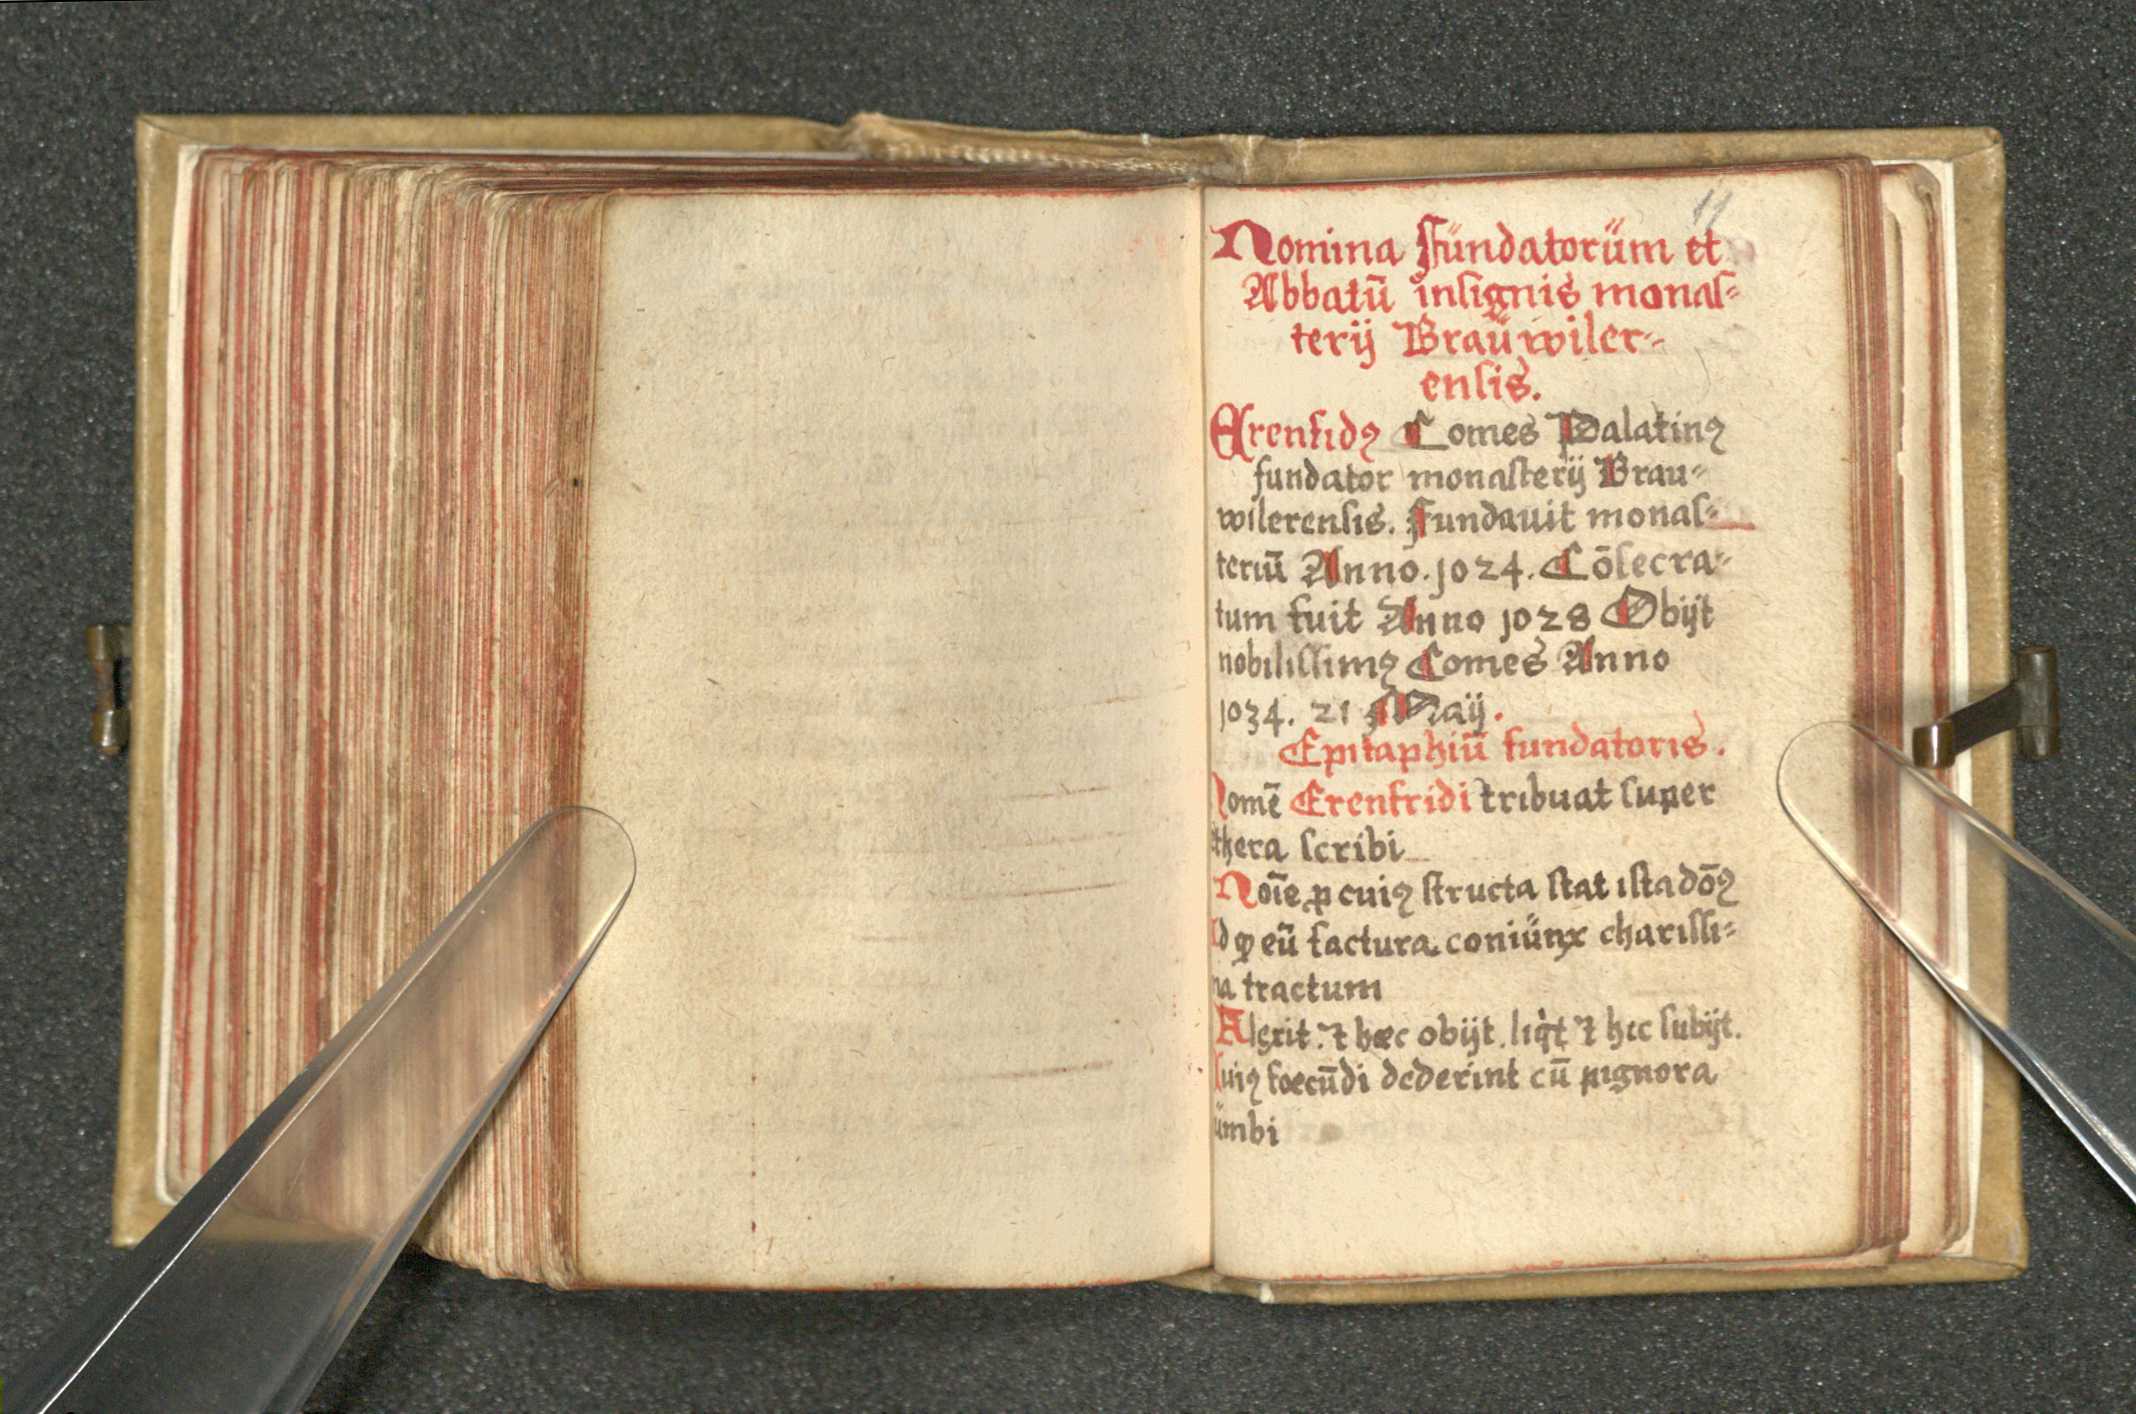 11
Nomina Fündatorüm et
Abbatū insignis monaſ=
terij Braüwiler=
enſis.
Erenfidꝯ Comes Palatinꝯ
fundator monaſterij Brau=
wilerenſis. Fundauit monaſ=
teriū Anno. 1024. Cōſecra=
tum fuit Anno 1028 Obijt
nobiliſſimꝯ Comes Anno
1034. 21 Maij.
Epitaphiū fundatoris.
Nomē Erenfridi tribuat ſuper
ethera ſcribi
Noīe ꝓ cuiꝯ ſtructa ſtat iſta dōꝯ
Id eū factura coniünx chariſſi=
ma tractum
Alſrit. ⁊ hæc obijt. ⁊ hic ſubijt.
foecūdi dederint cū pignora